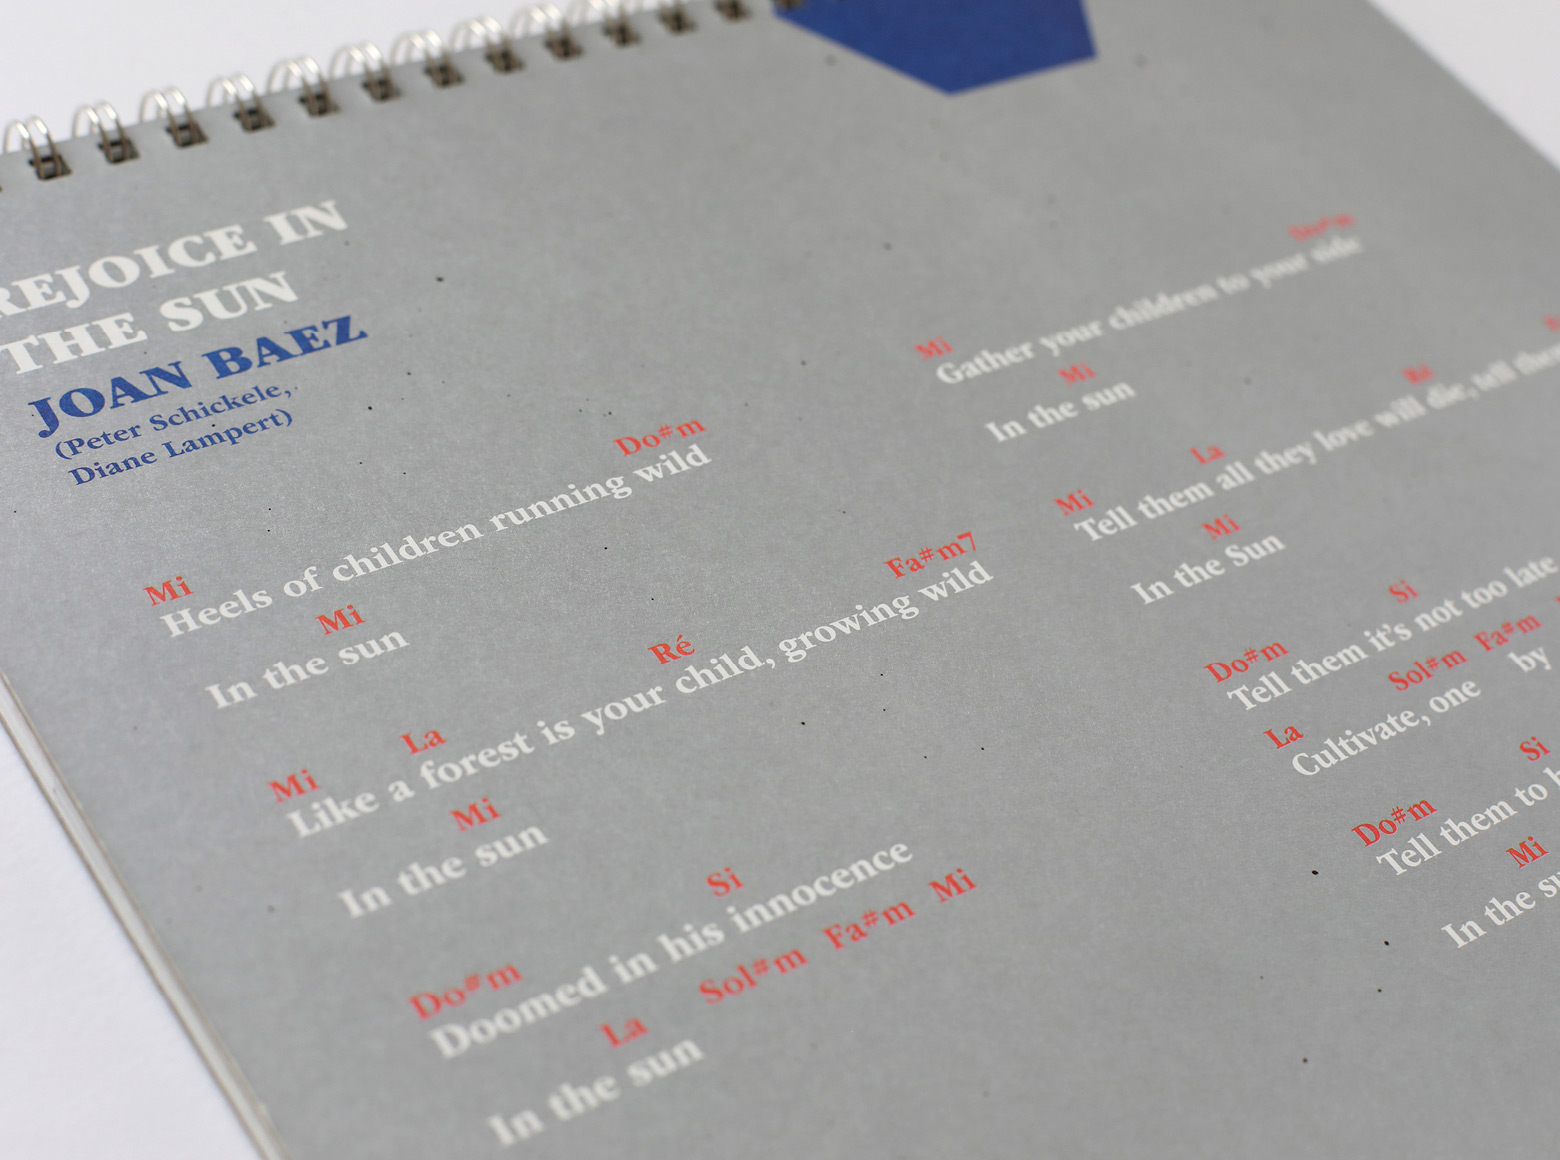 REJOICE IN
THE SUN
JOAN BAEZ
(Peter Schickele,
Diane Lampert)
Mi Do#m
Heels of children running wild
Mi
In the sun
Mi La Ré Fa#m7
Like a forest is your child, growing wild
Mi
In the sun
Do#m Si
Doomed in his innocence
La Sol#m Fa#m Mi
In the sun
Mi Do#m
Gather your children to your side
Mi
In the sun
Mi La Ré
Tell them all they love will die, tell them
Mi
In the Sun
Do#m Si
Tell them it's not too late
La Sol#m Fa#m
Cultivate, one by
Do#m Si
Tell them to
Mi
In the